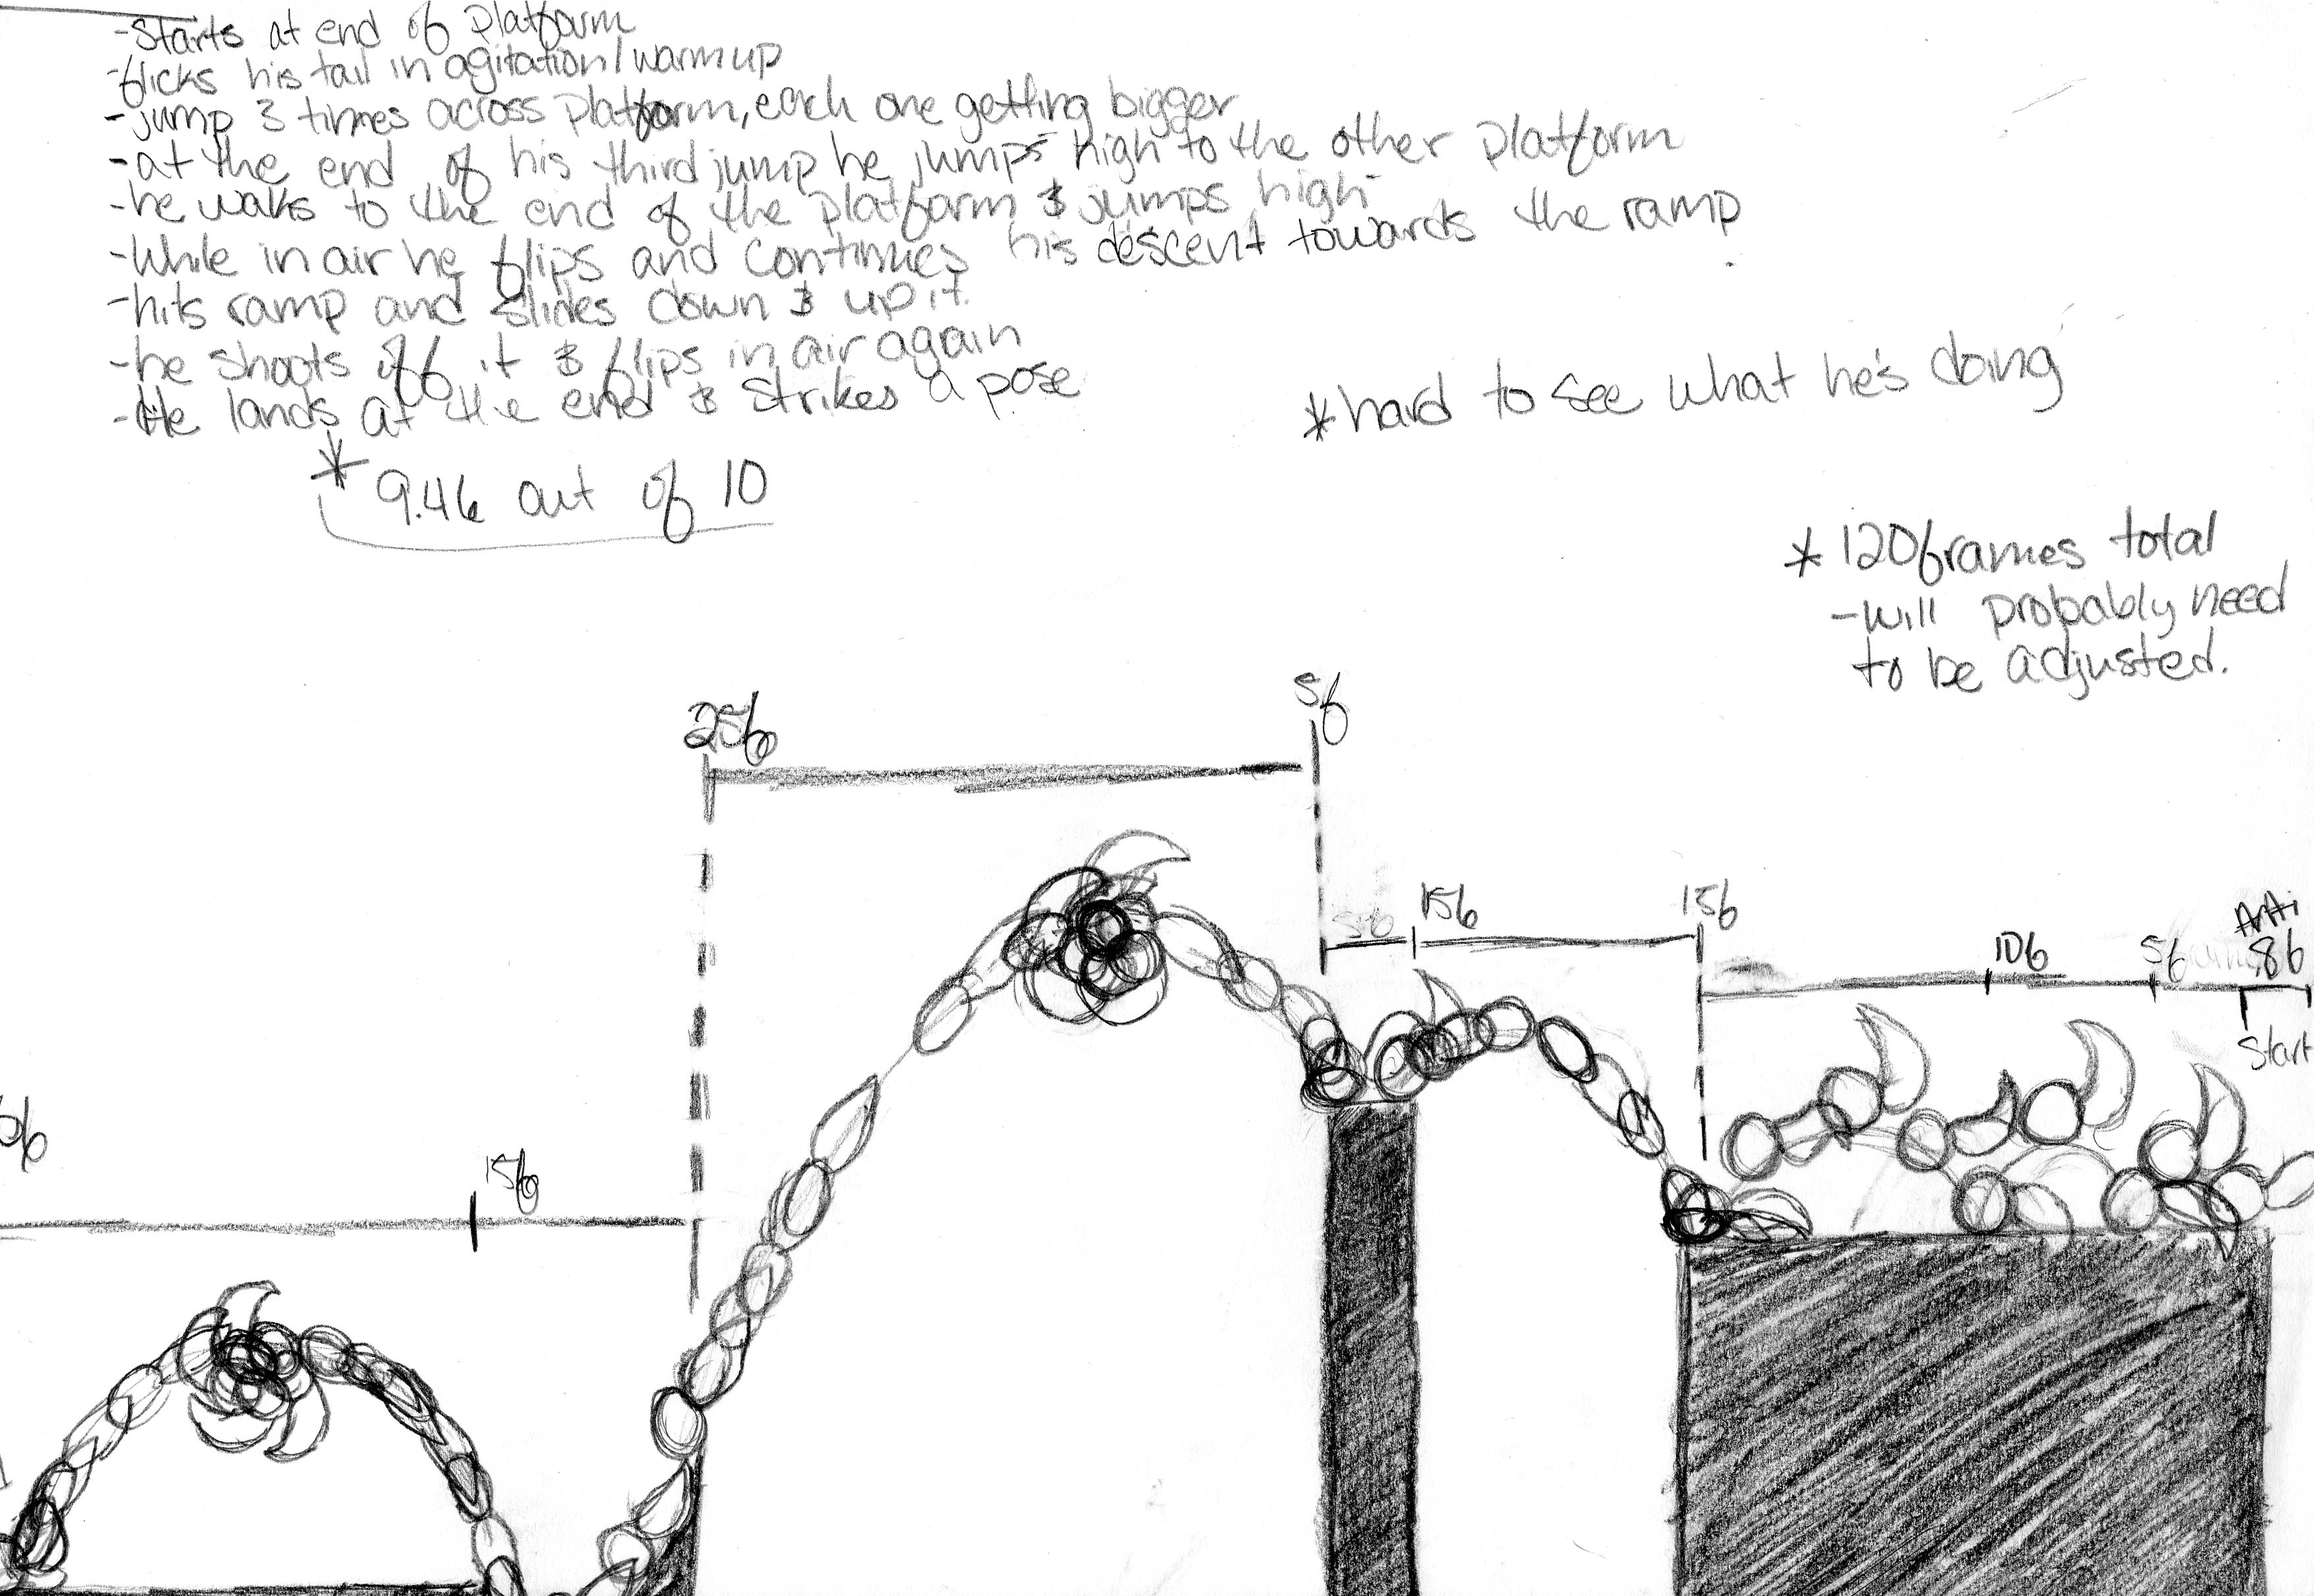 -Starts at end of Platform
-flicks his tail in agitation/warmup
-jump 3 times across platform, each one getting bigger
-at the end of his third jump he jumps high to the other platform
-he walks to the end of the platform & jumps high
-While in air he flips and continues his descent towards the ramp
-hits ramp and slides down & up it.
-he shoots off it & flips in air again
-He lands at the end & strikes a pose
* 9.46 out of 10
*hard to see what he's doing
* 120frames total
-will probably need
to be adjusted.
25f
5f
5f
15f
15f
10f
5f
Anti
8f
Start
15f